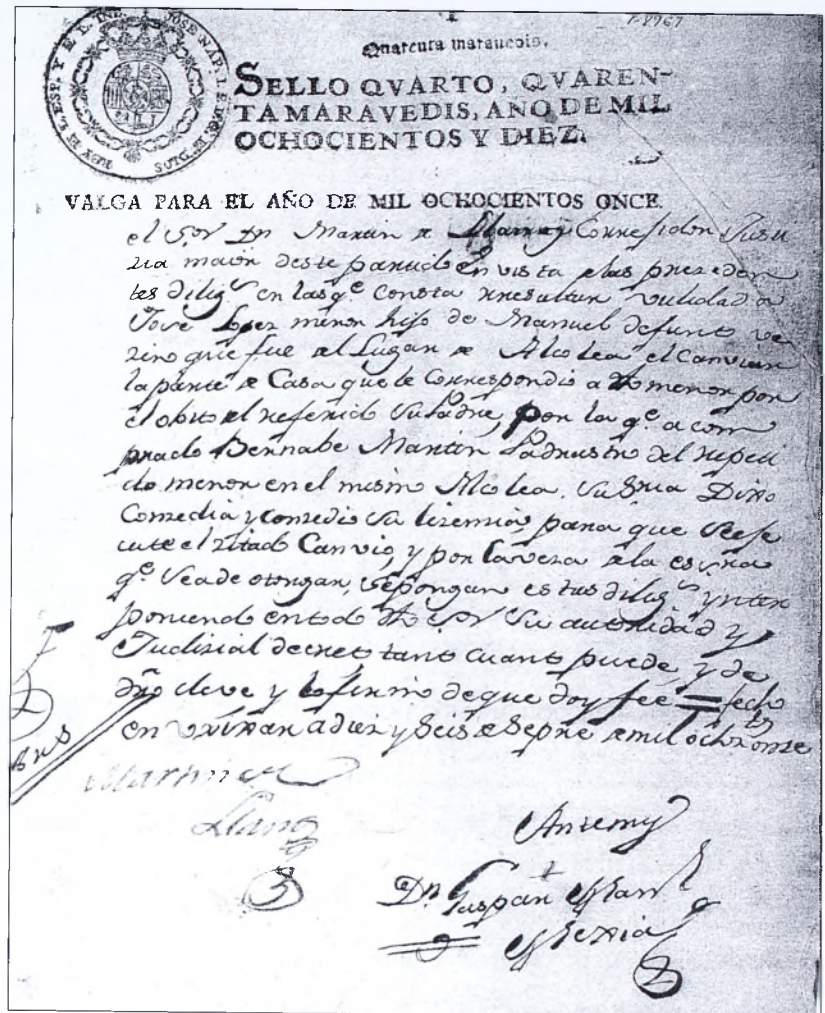 P-8967
Quarenta marauedis.
SELLO QVARTO, QVAREN-
TA MARAVEDIS, AÑO DE MIL
OCHOCIENTOS Y DIEZ.
VALGA PARA EL AÑO DE MIL OCHOCIENTOS ONCE.
el Sor Dn Martin de Corregidor Justi
zia maior deste partido en vista de las preceden
tes diligs en las qe consta y resultar utilidad a
Jose Lopez menor hijo de Manuel defunto ve
zino que fue del Lugar de Alcolea el Canviar
la parte de Casa que le correspondio a dho menor por
el obito del referido su Padre, por la qe a com
prado Bernabe Martin Padrastro del repeti
do menor en el mismo Alcolea. Su Sria Dixo
Comzedia y comzedio su lizenzia, para que se efe
cute el zitado Canvio, y por caveza de la esra
qe se a de otorgar, se pongan estas diligs ynter
poniendo en todo dho Sor su autoridad y
Judizial decreto tanto cuanto puede, y de
dro deve y lo firmo de que doy fee = fecho
en Uxixar a diez y seis de Sepre de mil ochos onze
Martin de
Llano
Antemy
Dn Gaspar
Mexia